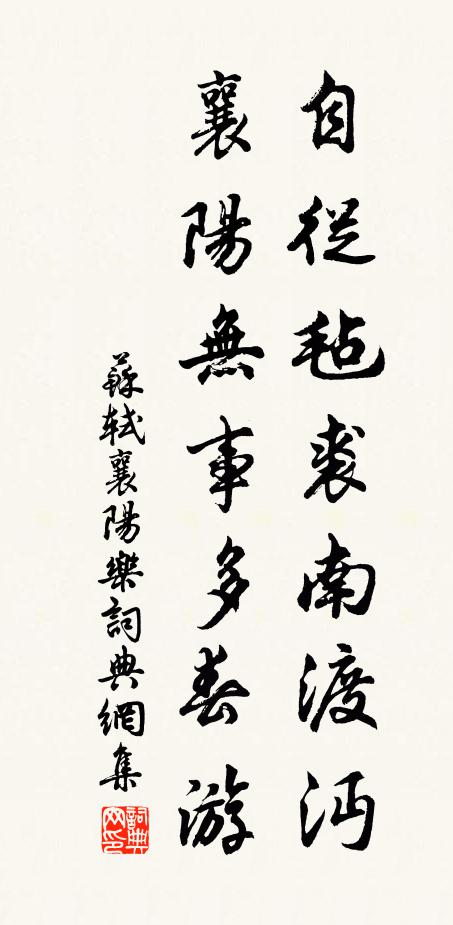 自從毡裘南渡沔
襄陽無事多春游
蘇軾襄陽樂詞典網集
詞典網印